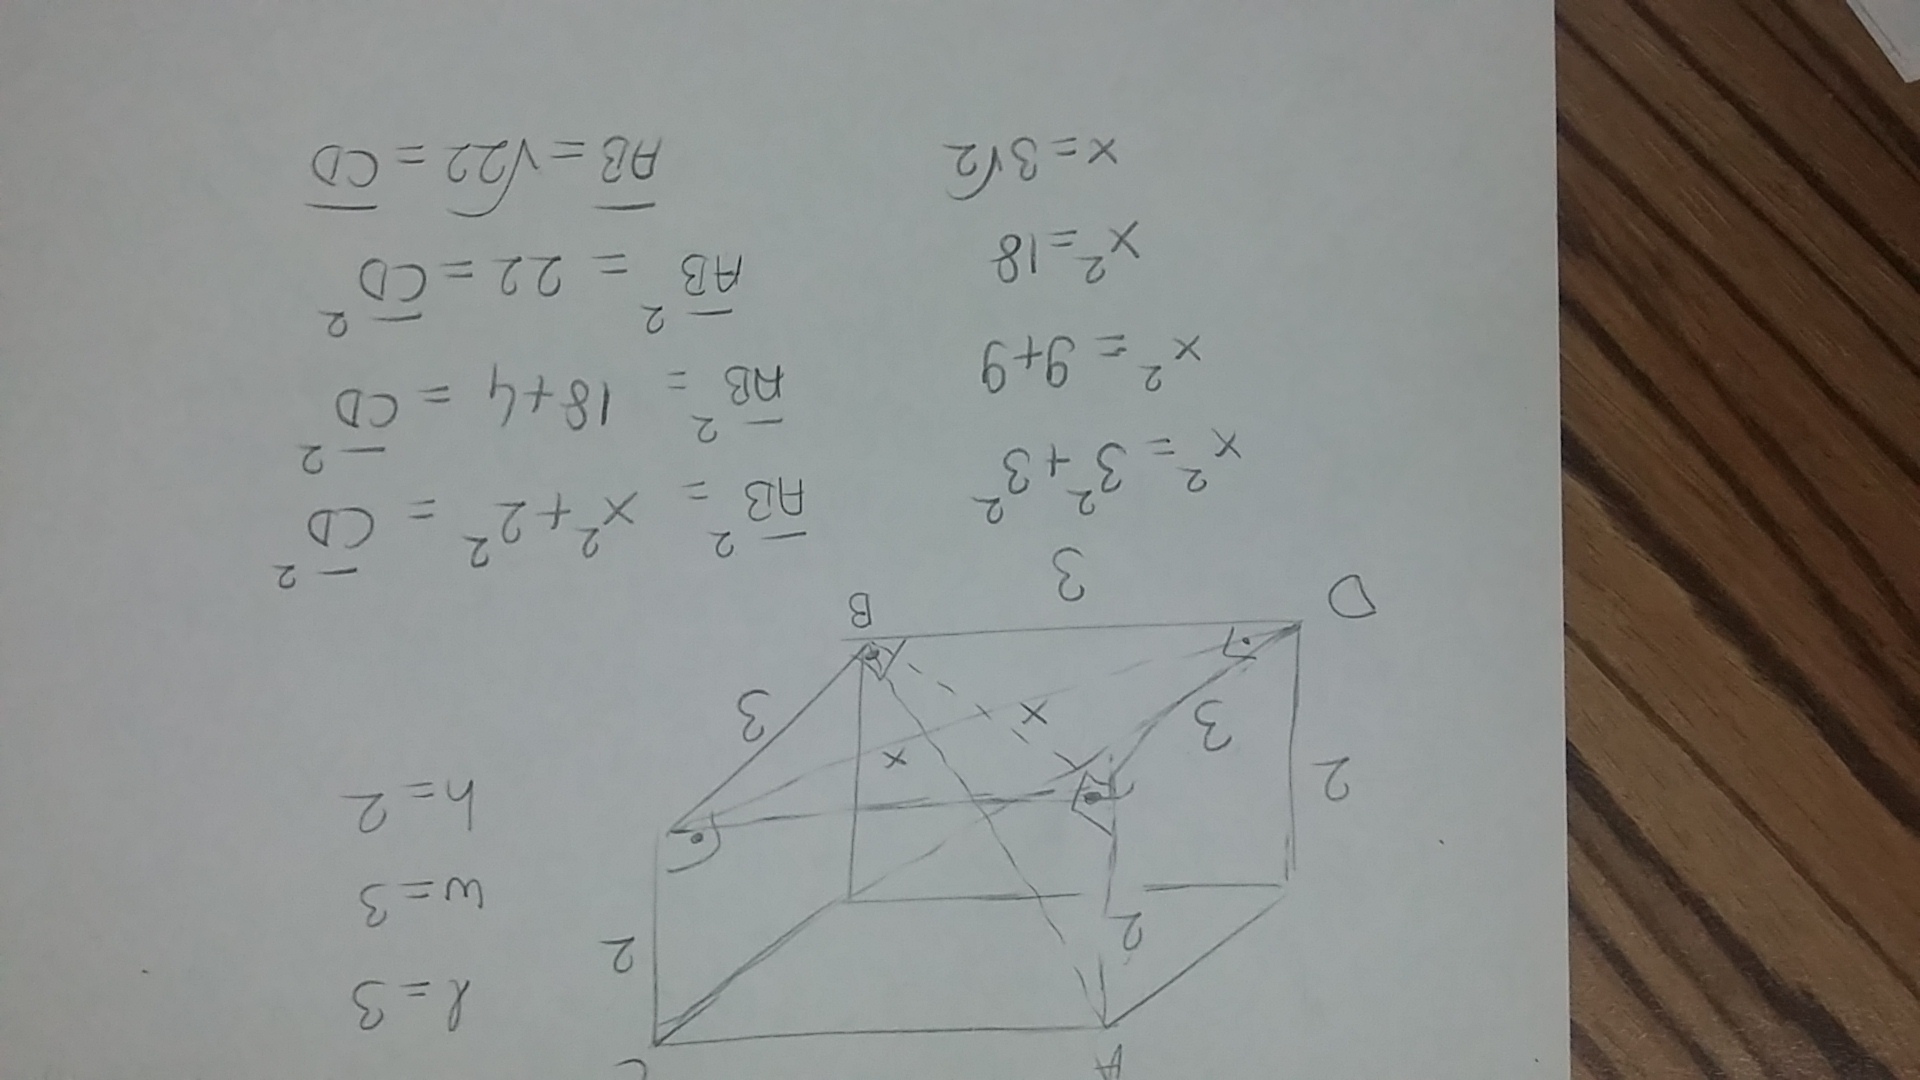 A
C
l = 3
w = 3
h = 2
2
2
2
3
x
x
3
D
B
3
x² = 3² + 3²
x² = 9+9
x² = 18
x = 3√2
A̅B̅² = x² + 2² = C̅D̅²
A̅B̅² = 18 + 4 = C̅D̅²
A̅B̅² = 22 = C̅D̅²
A̅B̅ = √22 = C̅D̅